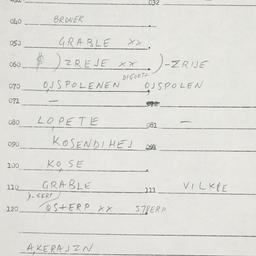 032
040 BROWER
050 GRABLE xx
060 $ ) ZREJE xx )-ZRIJE
070 OJSPOLENEN OJSPOLEN
071 —
080 LOPETE 081 —
090 KOSENDIHEJ 091
100 KOSE
110 GRABLE 111 VILKLE
120 OSTERP xx STPERP
AKERAJZN